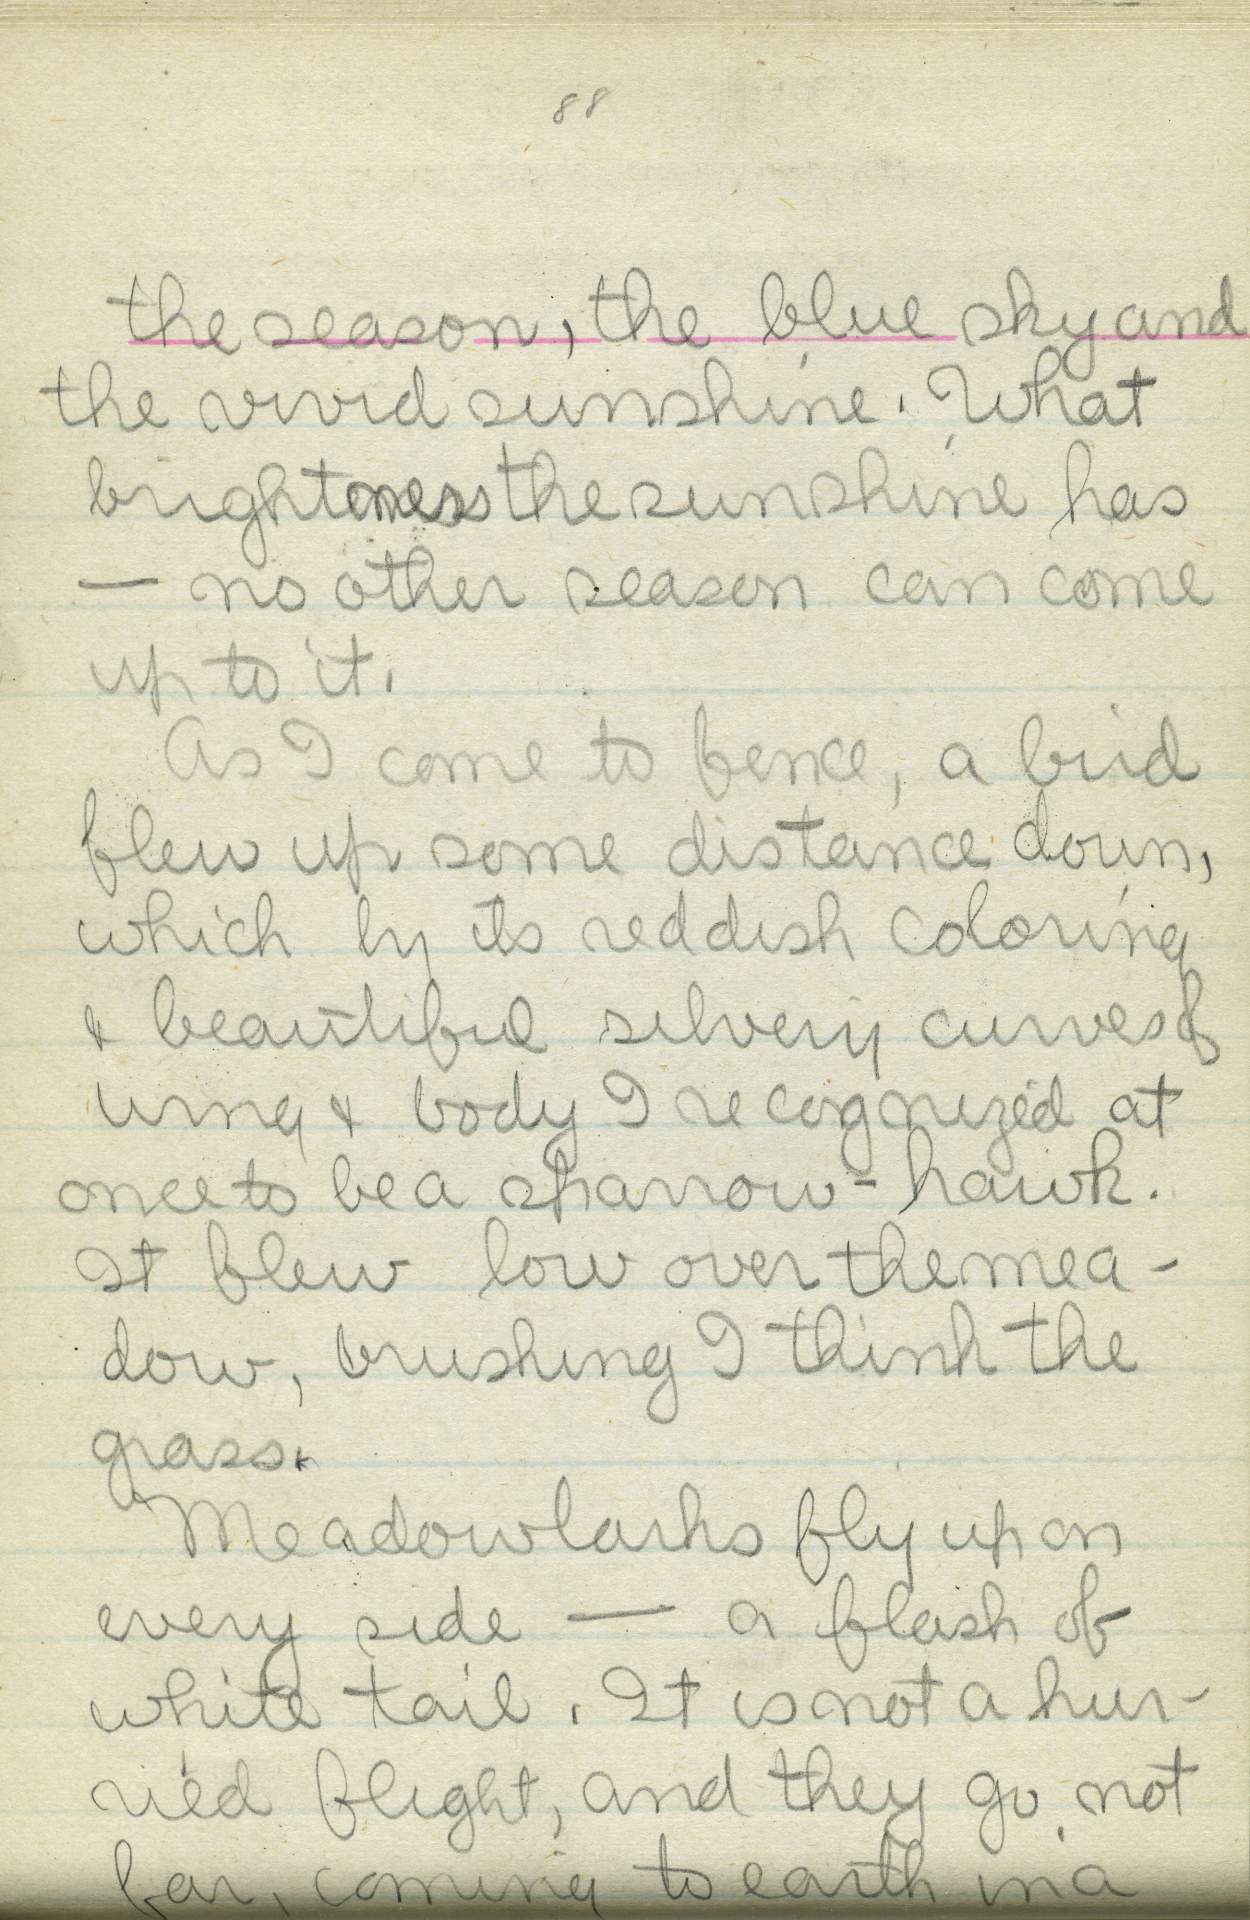 88
the season, the blue sky and
the vivid sunshine. What
brightness the sunshine has
— no other season can come
up to it.
As I come to fence, a bird
flew up some distance down,
which by its reddish coloring
& beautiful silvery curves of
wing & body I recognized at
once to be a sparrow-hawk.
It flew low over the mea-
dow, brushing I think the
grass.
Meadowlarks fly up on
every side — a flash of
white tail. It is not a hur-
ried flight, and they go not
far, coming to earth in a